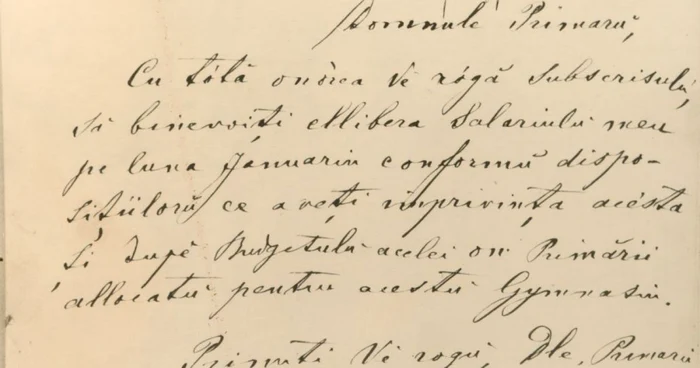 Domnule Primarŭ,
Cu tótă onórea Ve rógă Subscrisulŭ,
să binevoiți ellibera Salariulŭ meu
pe luna Januariu conformŭ dispo-
sițiilorŭ ce aveți inprivința acésta
și dupĕ Budgetulŭ acelei on. Primării
allocatŭ pentru acestŭ Gymnasiu.
Primiți Vĕ rogŭ, Dle, Primarŭ